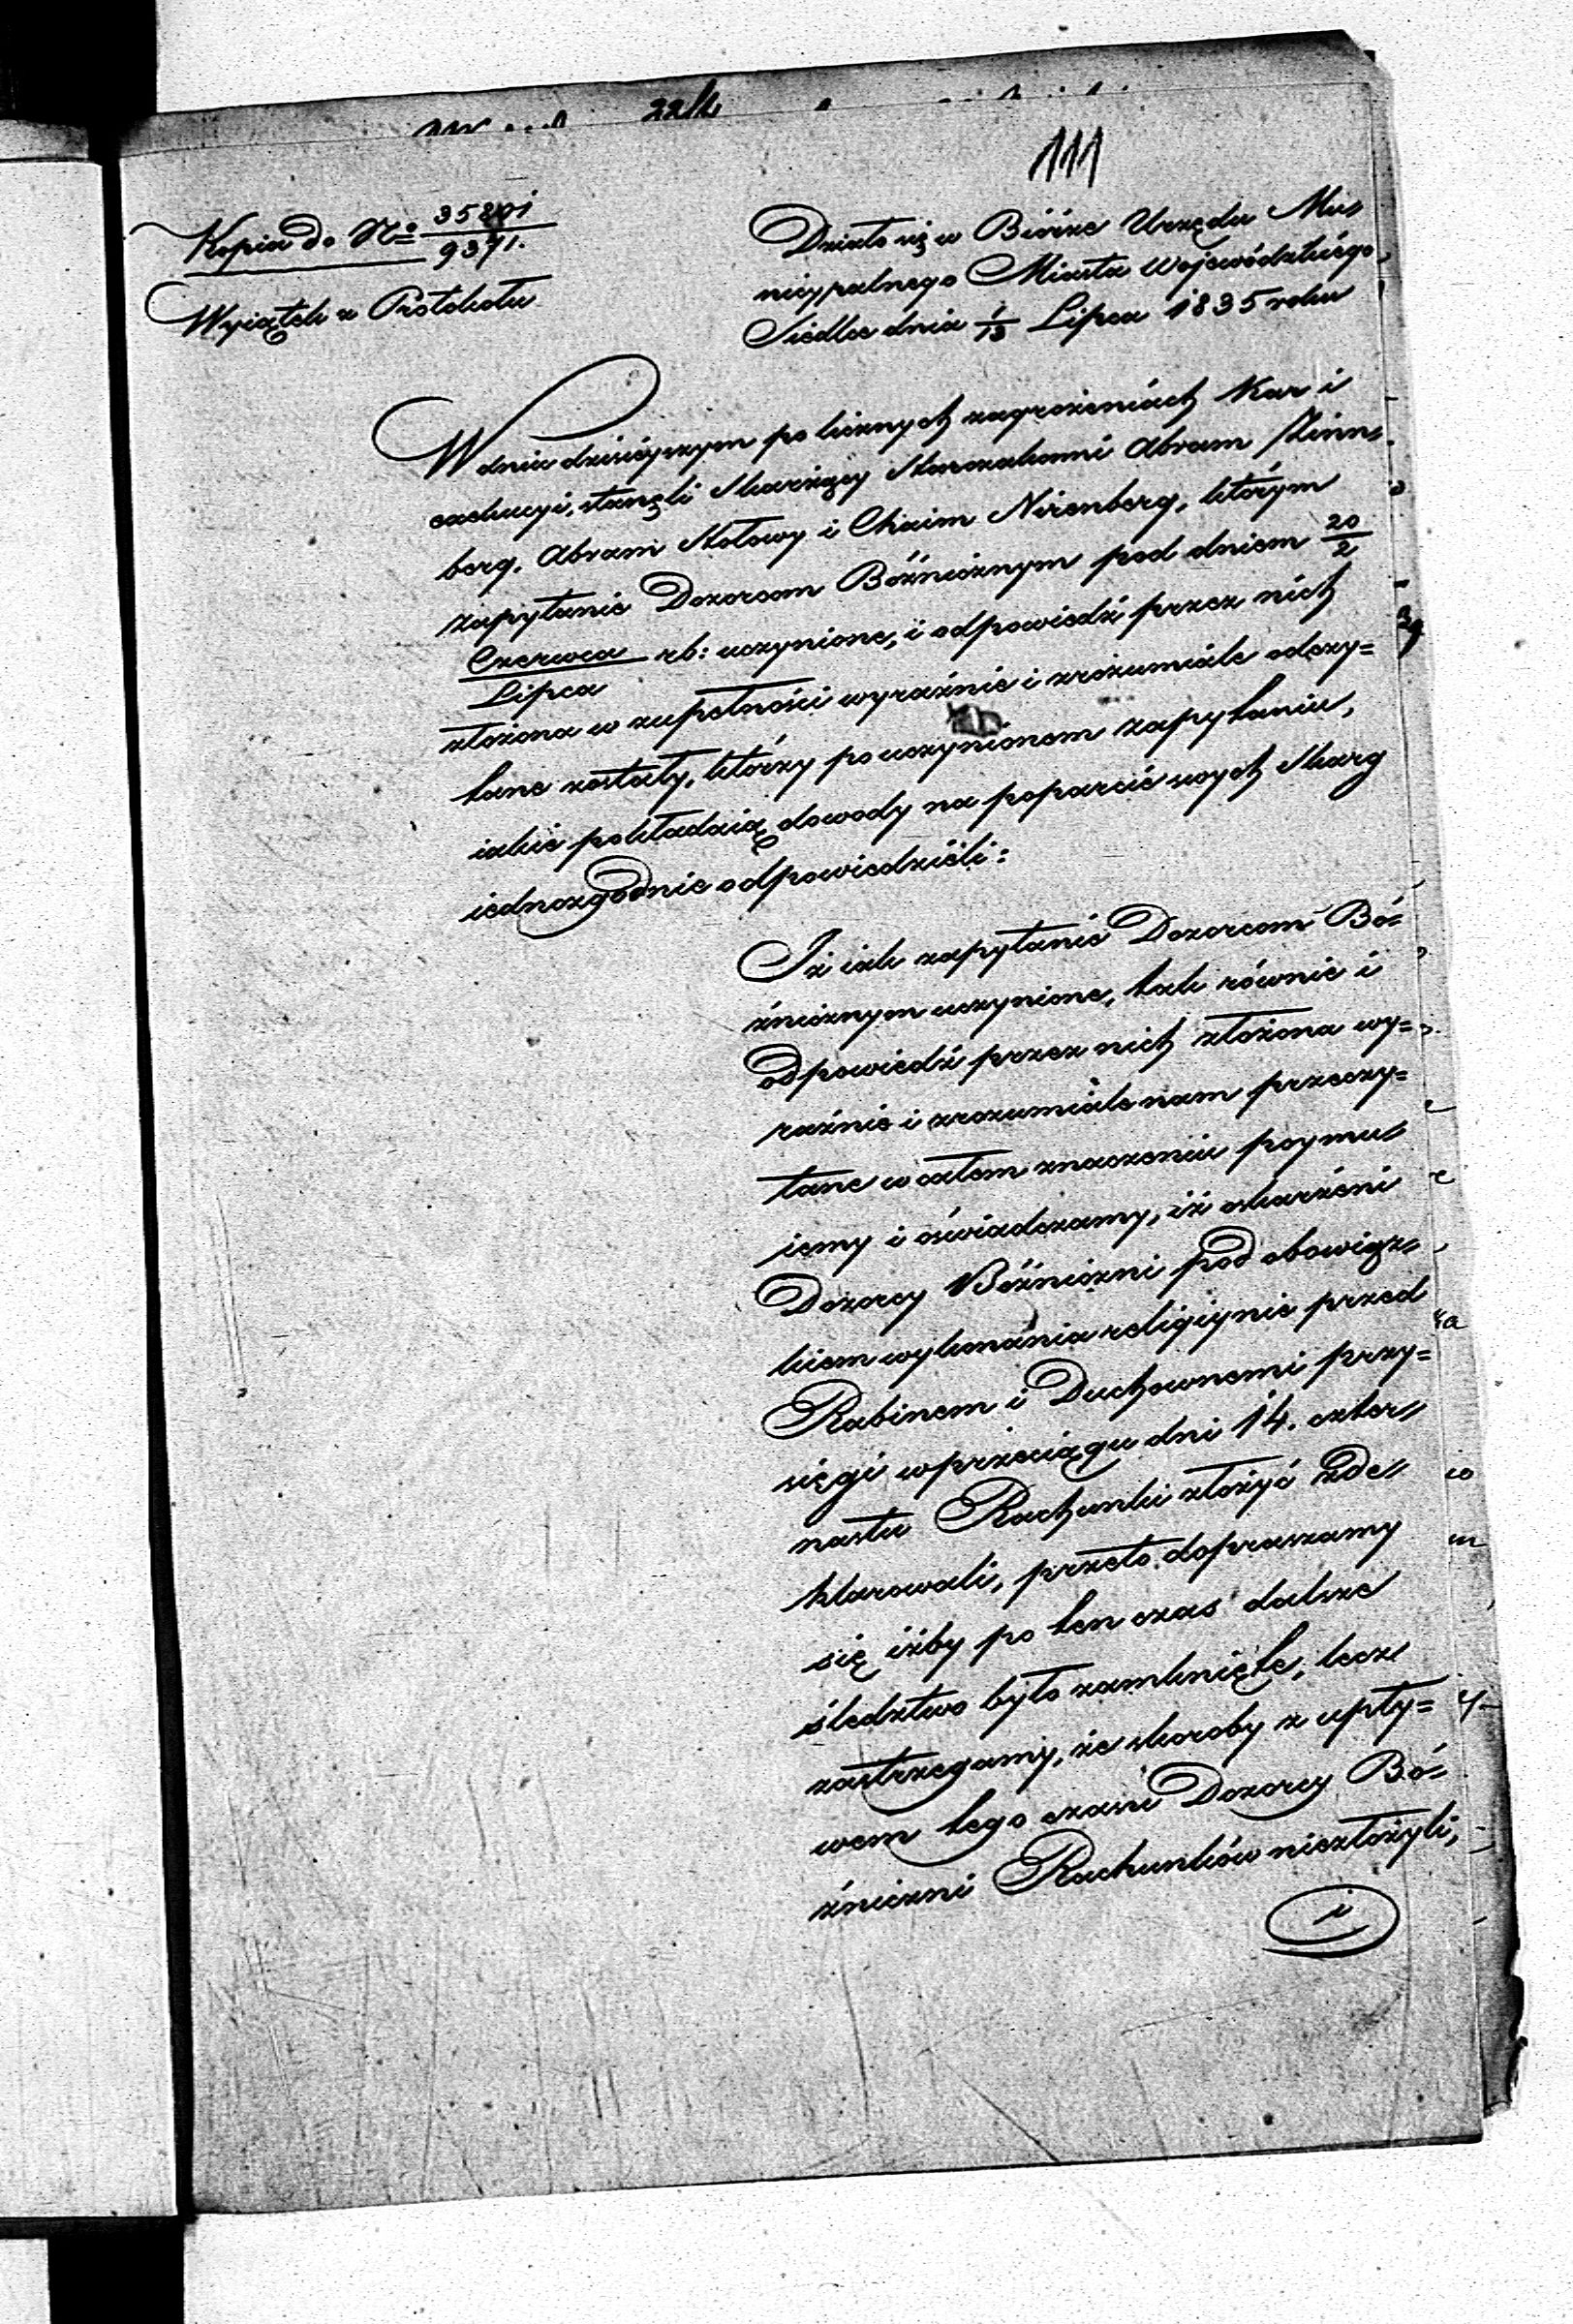 111
Kopia do No 35201/9371.
Wyiątek z Protokołu
Działo się w Biórze Urzędu Mu=
nicypalnego Miasta Wojewódzkiego
Siedlce dnia 1/13 Lipca 1835 roku
W dniu dzisiéyszym po licznych zagrożeniach Kar i
exekucyi, stanęli Skarżący Starozakonni Abram
berg, Abram Stołowy i Chaim Nirenberg, którym
zapytanie Dozorcom Bóźnicznym pod dniem 20/2
Czerwca/Lipca rb: uczynione, i odpowiedź przez nich
złożona w zupełności wyraźnie i zrozumiale odczy=
tane zostały, którzy po uczynionem zapytaniu,
iakie pokładaią dowody na poparcie swych Skarg
iednozgodnie odpowiedzieli:
Iż iak zapytanie Dozorcom Bó=
źnicznym uczynione, tak równie i
odpowiedź przez nich złożona wy=
raźnie i zrozumiale nam przeczy=
tane w całem znaczeniu poymu=
iemy i oświadczamy, iż oskarżeni
Dozorcy Bóźniczni pod obowiąz=
kiem wykonania religiynie przed
Rabinem i Duchownemi przy=
sięgi w przeciągu dni 14. czter=
nastu Rachunki złożyć zde=
klarowali, przeto dopraszamy
się iżby po ten czas dalsze
śledztwo było zamknięte, lecz
zastrzegamy, że skoroby z upły=
wem tego czasu Dozorcy Bó=
źniczni Rachunków niezłożyli,
i